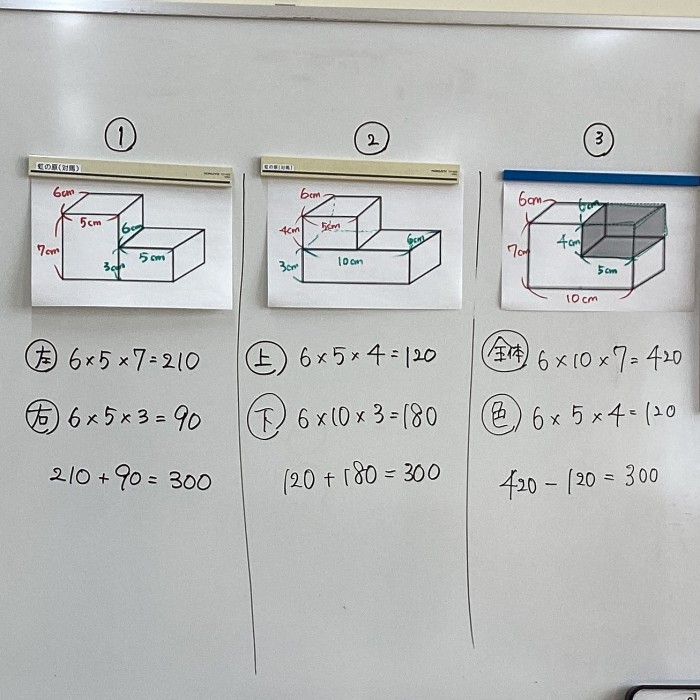 ①
虹の原(対馬)
6cm
5cm
6cm
7cm
3cm
5cm
㊧ 6×5×7=210
㊨ 6×5×3=90
210+90=300
②
虹の原(対馬)
6cm
4cm
5cm
6cm
3cm
10cm
㊤ 6×5×4=120
㊦ 6×10×3=180
120+180=300
③
6cm
6cm
7cm
4cm
5cm
10cm
全体 6×10×7=420
色 6×5×4=120
420-120=300